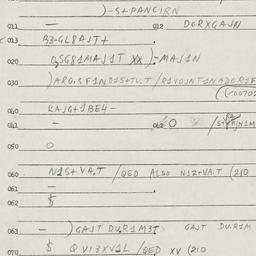 )-S+PANCIRN
011 — 012 DORXGAJN
013 B3-GL8AJT+
020 QSG81MAJ1T XX)-MAJ1N
030 )ARO.SF1ND1S+TU.T/R1VOJNT1NADOR1F
(V00702
040 KAJG+1BE4-
041 — 042 O
050 O
060 N1S+VA.T /QED ALSO N1Z+VA.T (210
061 —
062 $
063 — )GAJT DU.R1M3T GAJT DU.R1M
070 $ QV13XV1L /QED XV (210